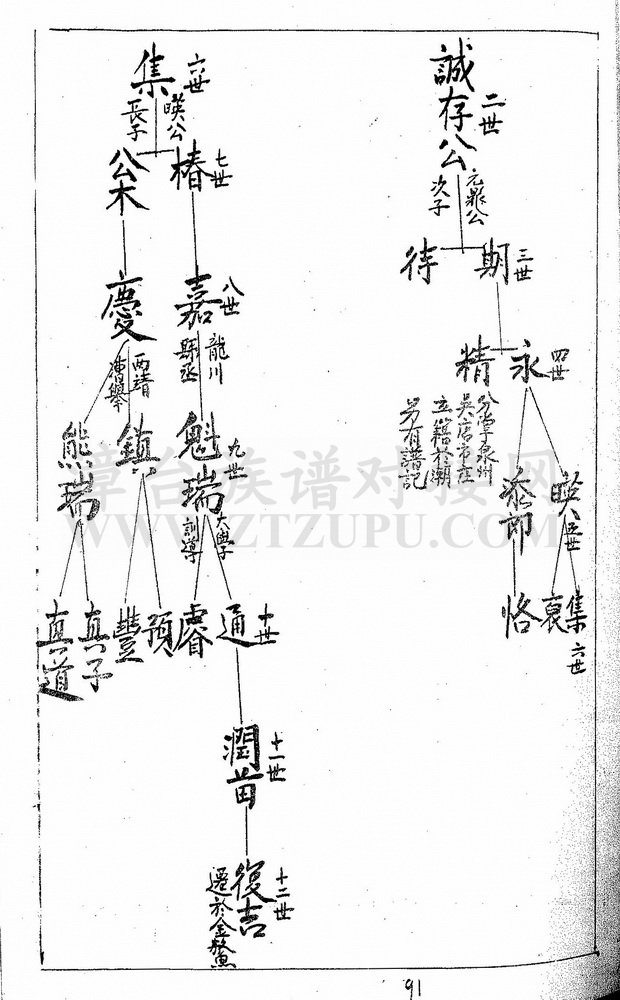 誠存公
二世
元鼎公
次子
期
三世
待
永
四世
精
分掌泉州
吳店市在
立籍於潮
另有譜記
暎
五世
添
集
六世
裒
恪
集
六世
暎公
長子
椿
七世
公木
嘉
八世
龍川
縣丞
慶
西靖
魁瑞
九世
大學
訓導
鎮
熊瑞
通
十世
睿
預
豐
真子
真道
潤苗
十一世
復吉
十二世
遷於金鰲
章台族谱对接网
WWW.ZTZUPU.COM
91